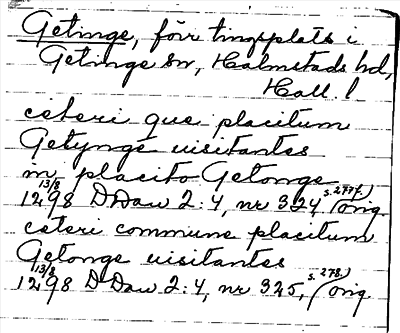 Getinge, förr tingsplats i
Getinge sn, Halmstads hd,
Hall. l
ceteri que placitum
Getynge uisitantes
in placito Getonge
13/8 1298 DDan 2:4, nr 324, s. 277f. (orig.)
ceteri commune placitum
Getonge uisitantes
13/8 1298 DDan 2:4, nr 325, s. 278. (orig.)